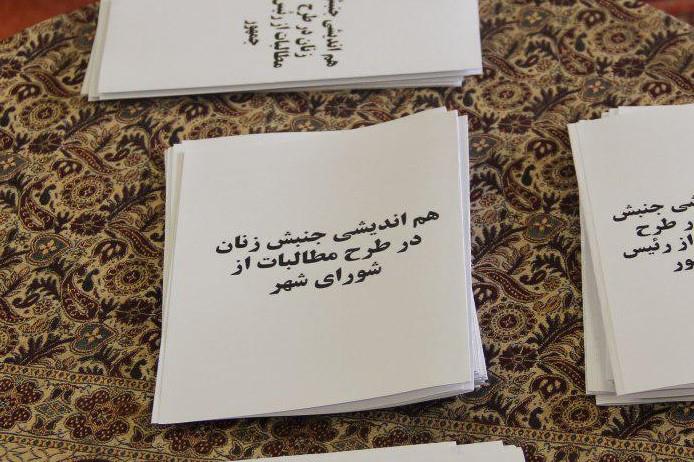 هم اندیشی جنبش
زنان در طرح
مطالبات از رئیس
جمهور
هم اندیشی جنبش زنان
در طرح مطالبات از
شورای شهر
جنبش
طرح
از رئیس